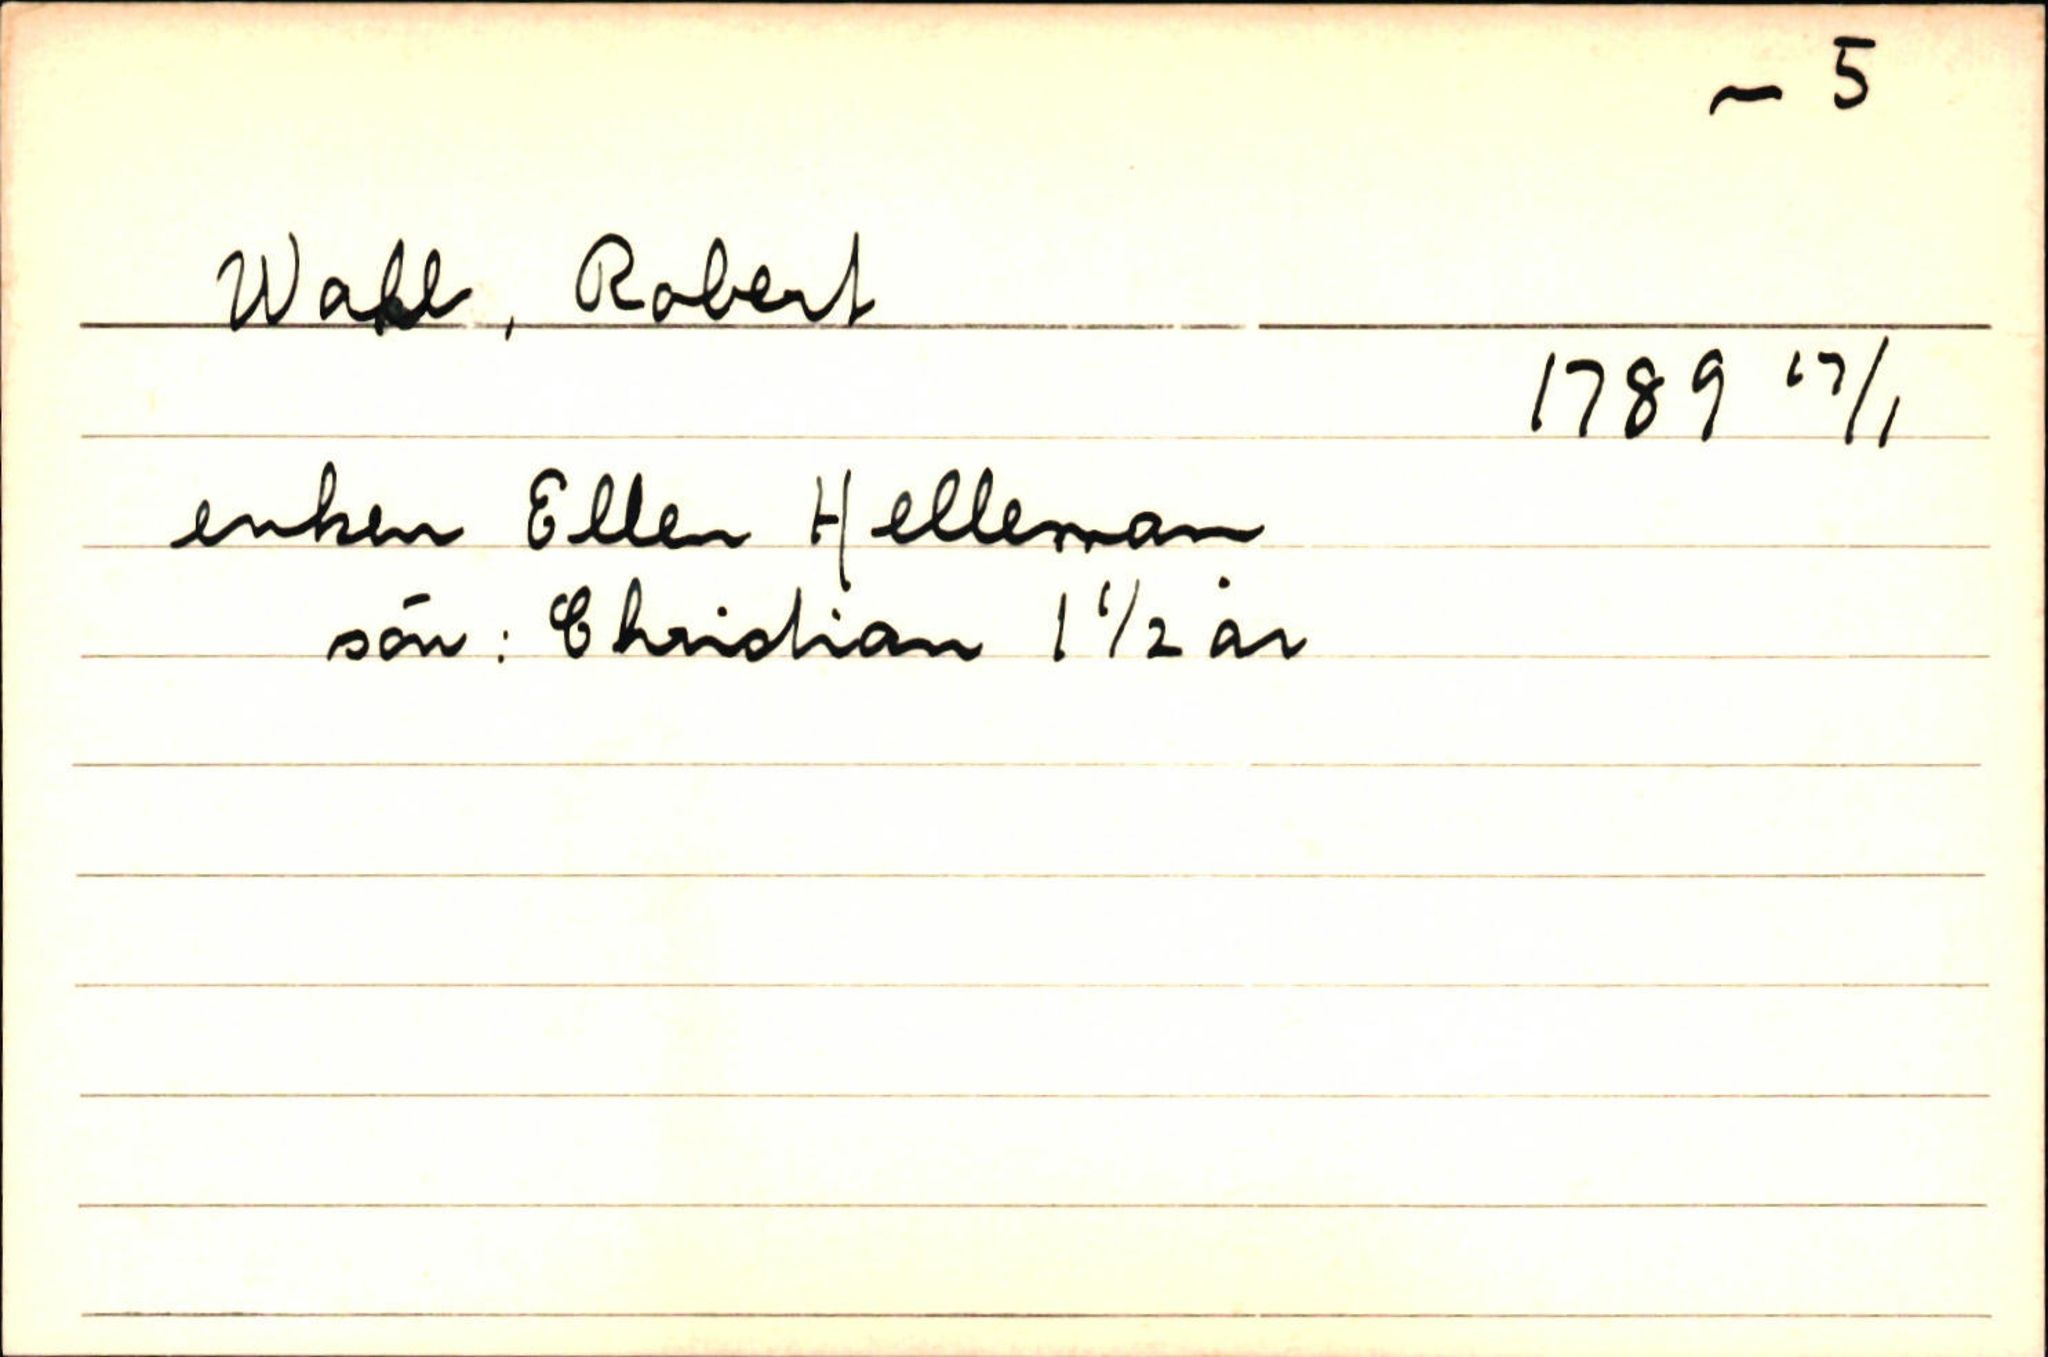 ~ 5
Wahl, Robert
1789 17/1
enken Ellen Helleman
sön: Christian 1 1/2 år